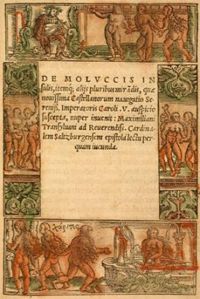 DE MOLVCCIS IN
sulis, itemq; alijs pluribus mirādis, quæ
nouissima Castellanorum nauigatio Se-
reniss. Imperatoris Caroli. V. auspicio
suscepta, nuper inuenit: Maximiliani
Transyluani ad Reuerendiss. Cardina-
lem Saltzburgensem epistola lectu per-
quam iucunda.